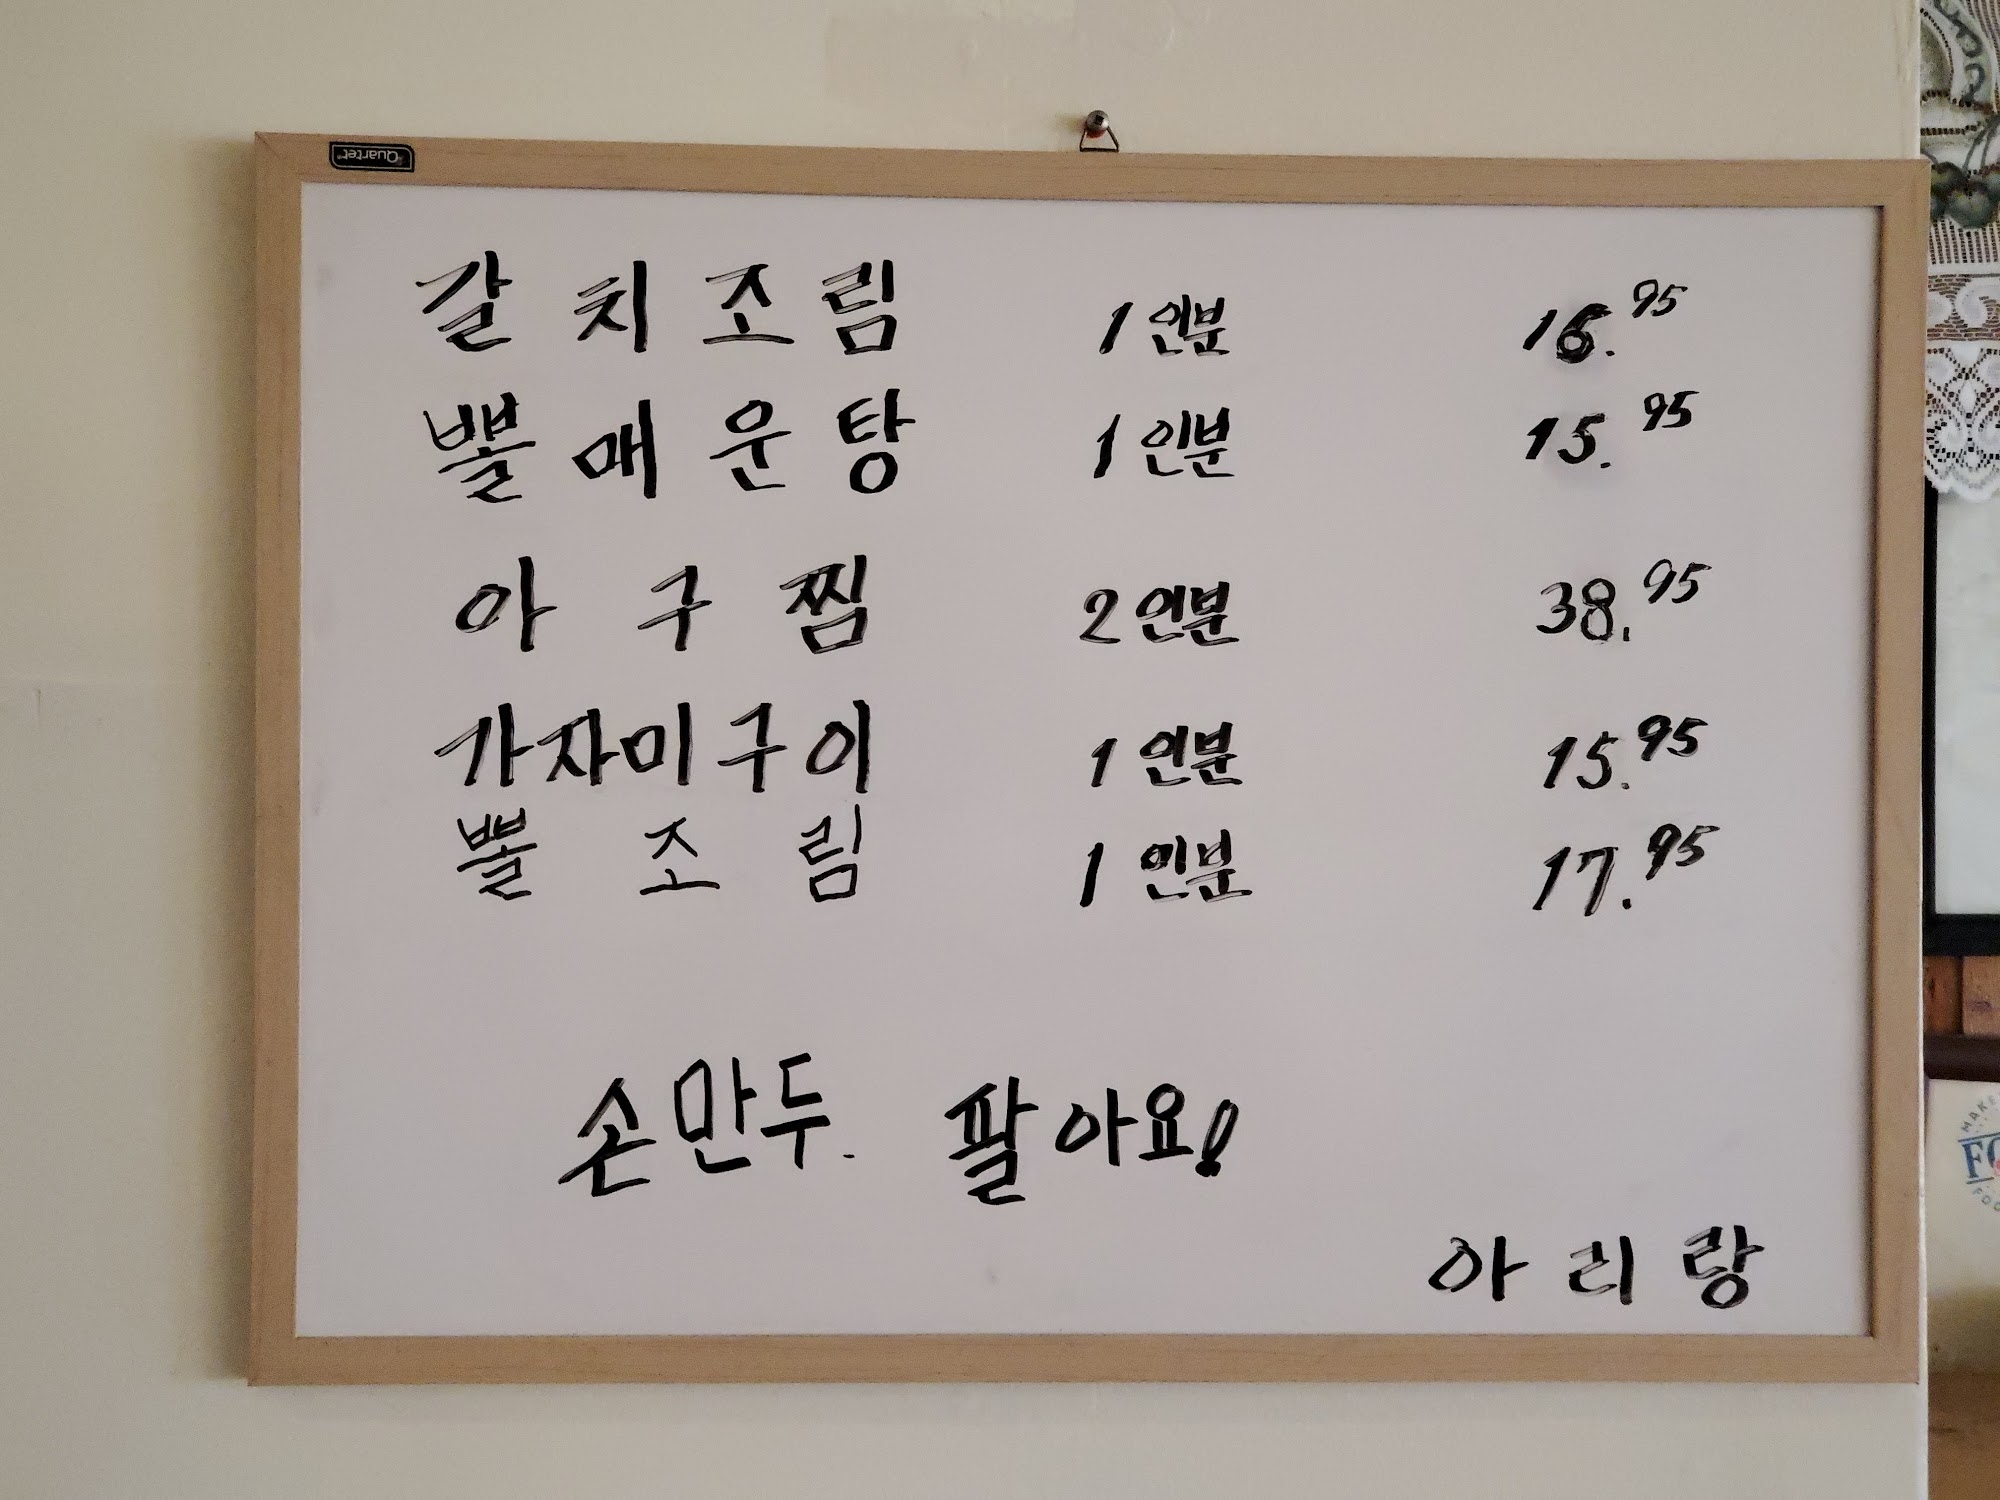 Quartet
갈치조림 1인분 16.95
뽈매운탕 1인분 15.95
아구찜 2인분 38.95
가자미구이 1인분 15.95
뽈조림 1인분 17.95
손만두. 팔아요!
아리랑